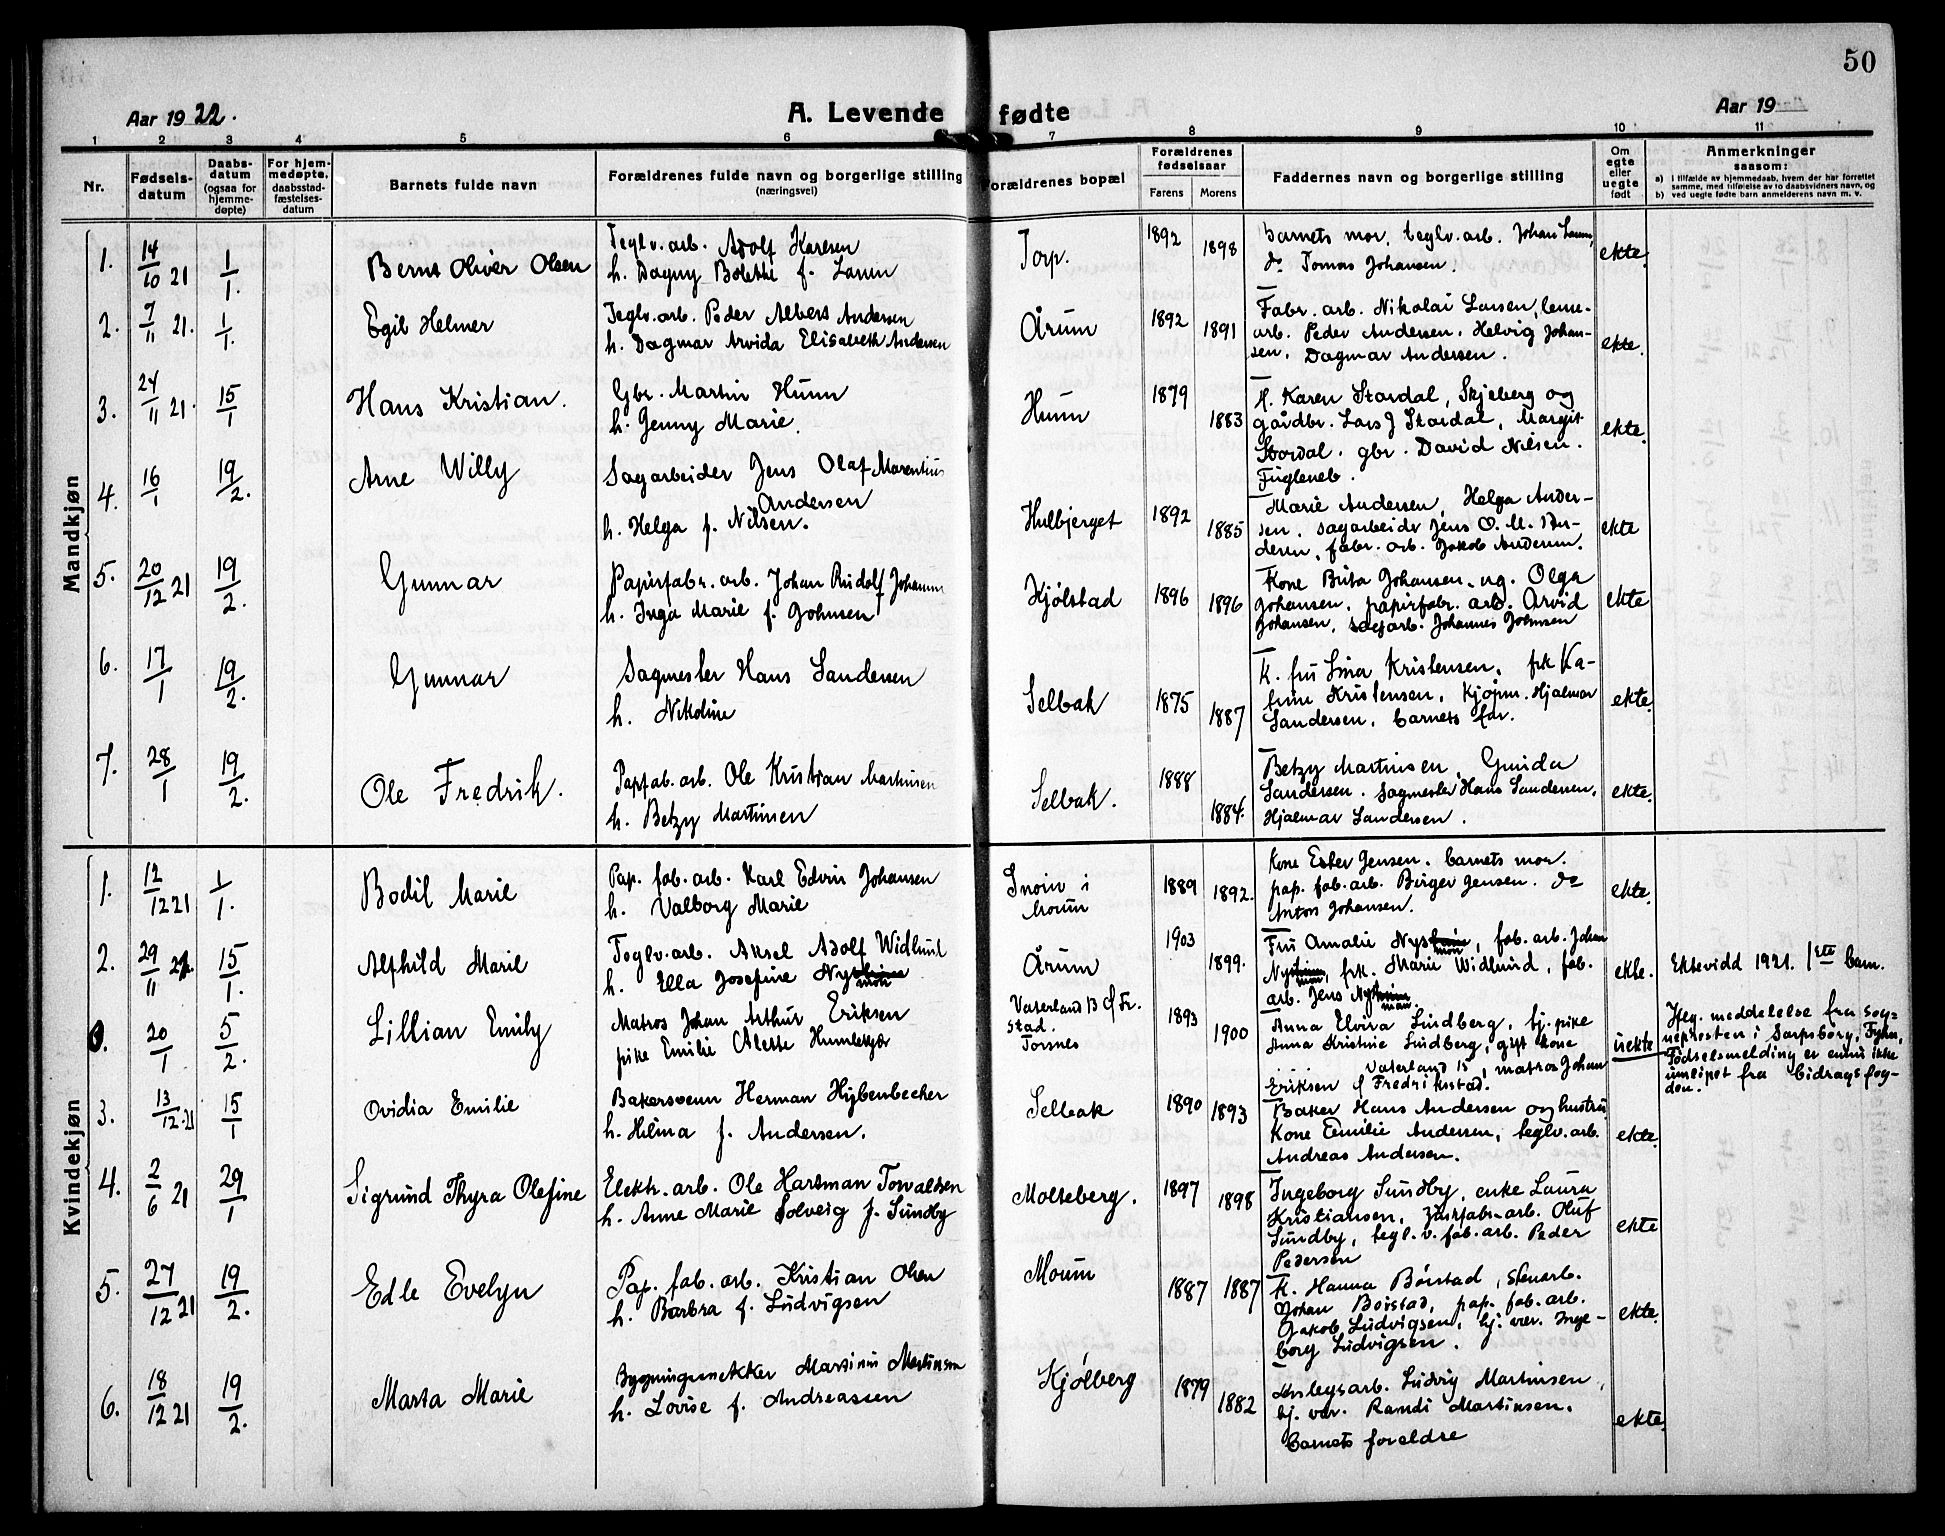 50
Aar 1922.
A. Levende fødte
Aar 19
1 2 3 4 5 6 7 8 9 10 11
Nr.
Fødsels-
datum
Daabs-
datum
(ogsaa for
hjemme-
døpte)
For hjem-
medøpte,
daabsstad-
fæstelses-
datum
Barnets fulde navn
Forældrenes fulde navn og borgerlige stilling
(næringsvei)
Forældrenes bopæl
Forældrenes
fødselsaar
Farens Morens
Faddernes navn og borgerlige stilling
Om
egte
eller
uegte
født
Anmerkninger
saasom:
a) i tilfælde av hjemmedaab, hvem der har forrettet
samme, med tilføielse av to daabsvidners navn, og
b) ved uegte fødte barn anmelderens navn m. v.
Mandkjøn
1. 14/10 21 1/1. Bernt Oliver Olsen
Teglv. arb. Adolf Karlsen
h. Dagny Bolette f. Larsen
Torp. 1892 1898
Barnets mor, teglv. arb. Johan Larsen,
do Tomas Johansen.
ekte.
2. 7/11 21. 1/1. Egil Helmer
Teglv. arb. Peder Albert Andersen
h. Dagmar Arvida Elisabeth Andersen
Årum 1892 1891
Fabr. arb. Nikolai Larsen,
arb. Peder Andersen. Helvig Johan-
sen. Dagmar Andersen.
ekte.
3. 24/11 21. 15/1 Hans Kristian.
Gbr. Martin Hunn
h. Jenny Marie.
Hunn 1879 1883
K. Karen Stordal, Skjeberg og
gårdbr. Lars J Stordal, Margit
Stordal. gbr. David Nilsen.
ekte.
4. 16/1 19/2. Arne Willy
Sagarbeider Jens Olaf Marentius
Andersen
h. Helga f. Nilsen.
Hulbjerget 1892 1885
Marie Andersen, Helga Ander-
sen, sagarbeider Jens O. M. An-
dersen, fabr. arb. Jakob Andersen.
ekte
5. 20/12 21 19/2. Gunnar
Papirfabr. arb. Johan Rudolf Johansen
h. Inga Marie f. Johnsen
Kjølstad 1896 1896
Kone Brita Johansen, ug. Olga
Johansen, papirfabr. arb. Arvid
Johansen, sagarb. Johannes Johnsen
ekte
6. 17/1 19/2. Gunnar
Sagmester Hans Sandersen
h. Nikoline
Selbak 1875 1887
K. fru Lina Kristensen, frk Ka-
trine Kristensen, Kjøpm. Hjalmar
Sandersen, barnets far.
ekte.
7. 28/1 19/2. Ole Fredrik.
Papfab. arb. Ole Kristian Martinsen
h. Betzy Martinsen
Selbak. 1888 1884.
Betzy Martinsen, Gunda
Sandersen. Sagmester Hans Sandersen,
Hjalmar Sandersen.
ekte.
Kvindekjøn
1. 12/12 21 1/1. Bodil Marie
Pap. fab. arb. Karl Edvin Johansen
h. Valborg Marie
i
Moum
1889 1892.
Kone Ester Jensen. barnets mor.
pap. fab. arb. Birger Jensen. do
Anton Johansen.
ekte.
2. 29/11 21. 15/1. Alfhild Marie
Teglv. arb. Aksel Adolf Widlund
h. Ella Josefine Nystrøm
man
Årum 1903 1899.
Fru Amalie Nystrøm, fab. arb. Johan
Nystrøm, frk. Marie Widlund, fab.
arb. Jens Nystrøm
man
ekte. Ektevidd 1921. 1ste barn.
0. 20/1 5/2. Lillian Emily
Matros Johan Arthur Eriksen
pike Emilie Alette Humlekjær
Vaterland 13 f Fr.
stad.
Torsnes
1893 1900
Anna Elvira Lindberg, tj. pike
Anna Kristine Lindberg, gift kone
Vaterland 15, matros Johan
Eriksen f Fredrikstad.
uekte
Iflg. meddelelse fra sog-
nepresten i Sarpsborg,
Fødselsmelding er ennu ikke
innløpet fra bidragsfog-
den.
3. 13/12. 21 15/1 Ovidia Emilie
Bakersvenn Herman Hybenbecker
h. Hilma f. Andersen.
Selbak 1890 1893
Baker Hans Andersen og hustru
Kone Emilie Andersen, teglv. arb.
Andreas Andersen.
ekte.
4. 2/6 21 29/1 Sigrund Thyra Olefine
Elektr. arb. Ole Hartman Torvaldsen
h. Anne Marie Solveig f. Sundby
Molteberg. 1897 1898
Ingeborg Sundby, enke Laura
Kristiansen, arb. Oluf
Sundby, tegl. v. fab. arb. Peder
Pedersen
ekte
5. 27/12 21 19/2. Edle Evelyn
Pap. fab. arb. Kristian Olsen
h. Barbra f. Ludvigsen
Moum 1887 1887
K. Hanna Børstad, stenarb.
Johan Børstad, pap. fab. arb.
Jakob Ludvigsen, hj. vær. Inge-
borg Ludvigsen.
ekte.
6. 18/12 21 19/2. Marta Marie
Bygningsnekker Martinius Martinsen
h. Lovise f. Andreassen
Kjølberg 1879 1882
Anlegsarb. Ludvig Martinsen,
hj. vær. Randi Martinsen.
barnets foreldre
ekte.